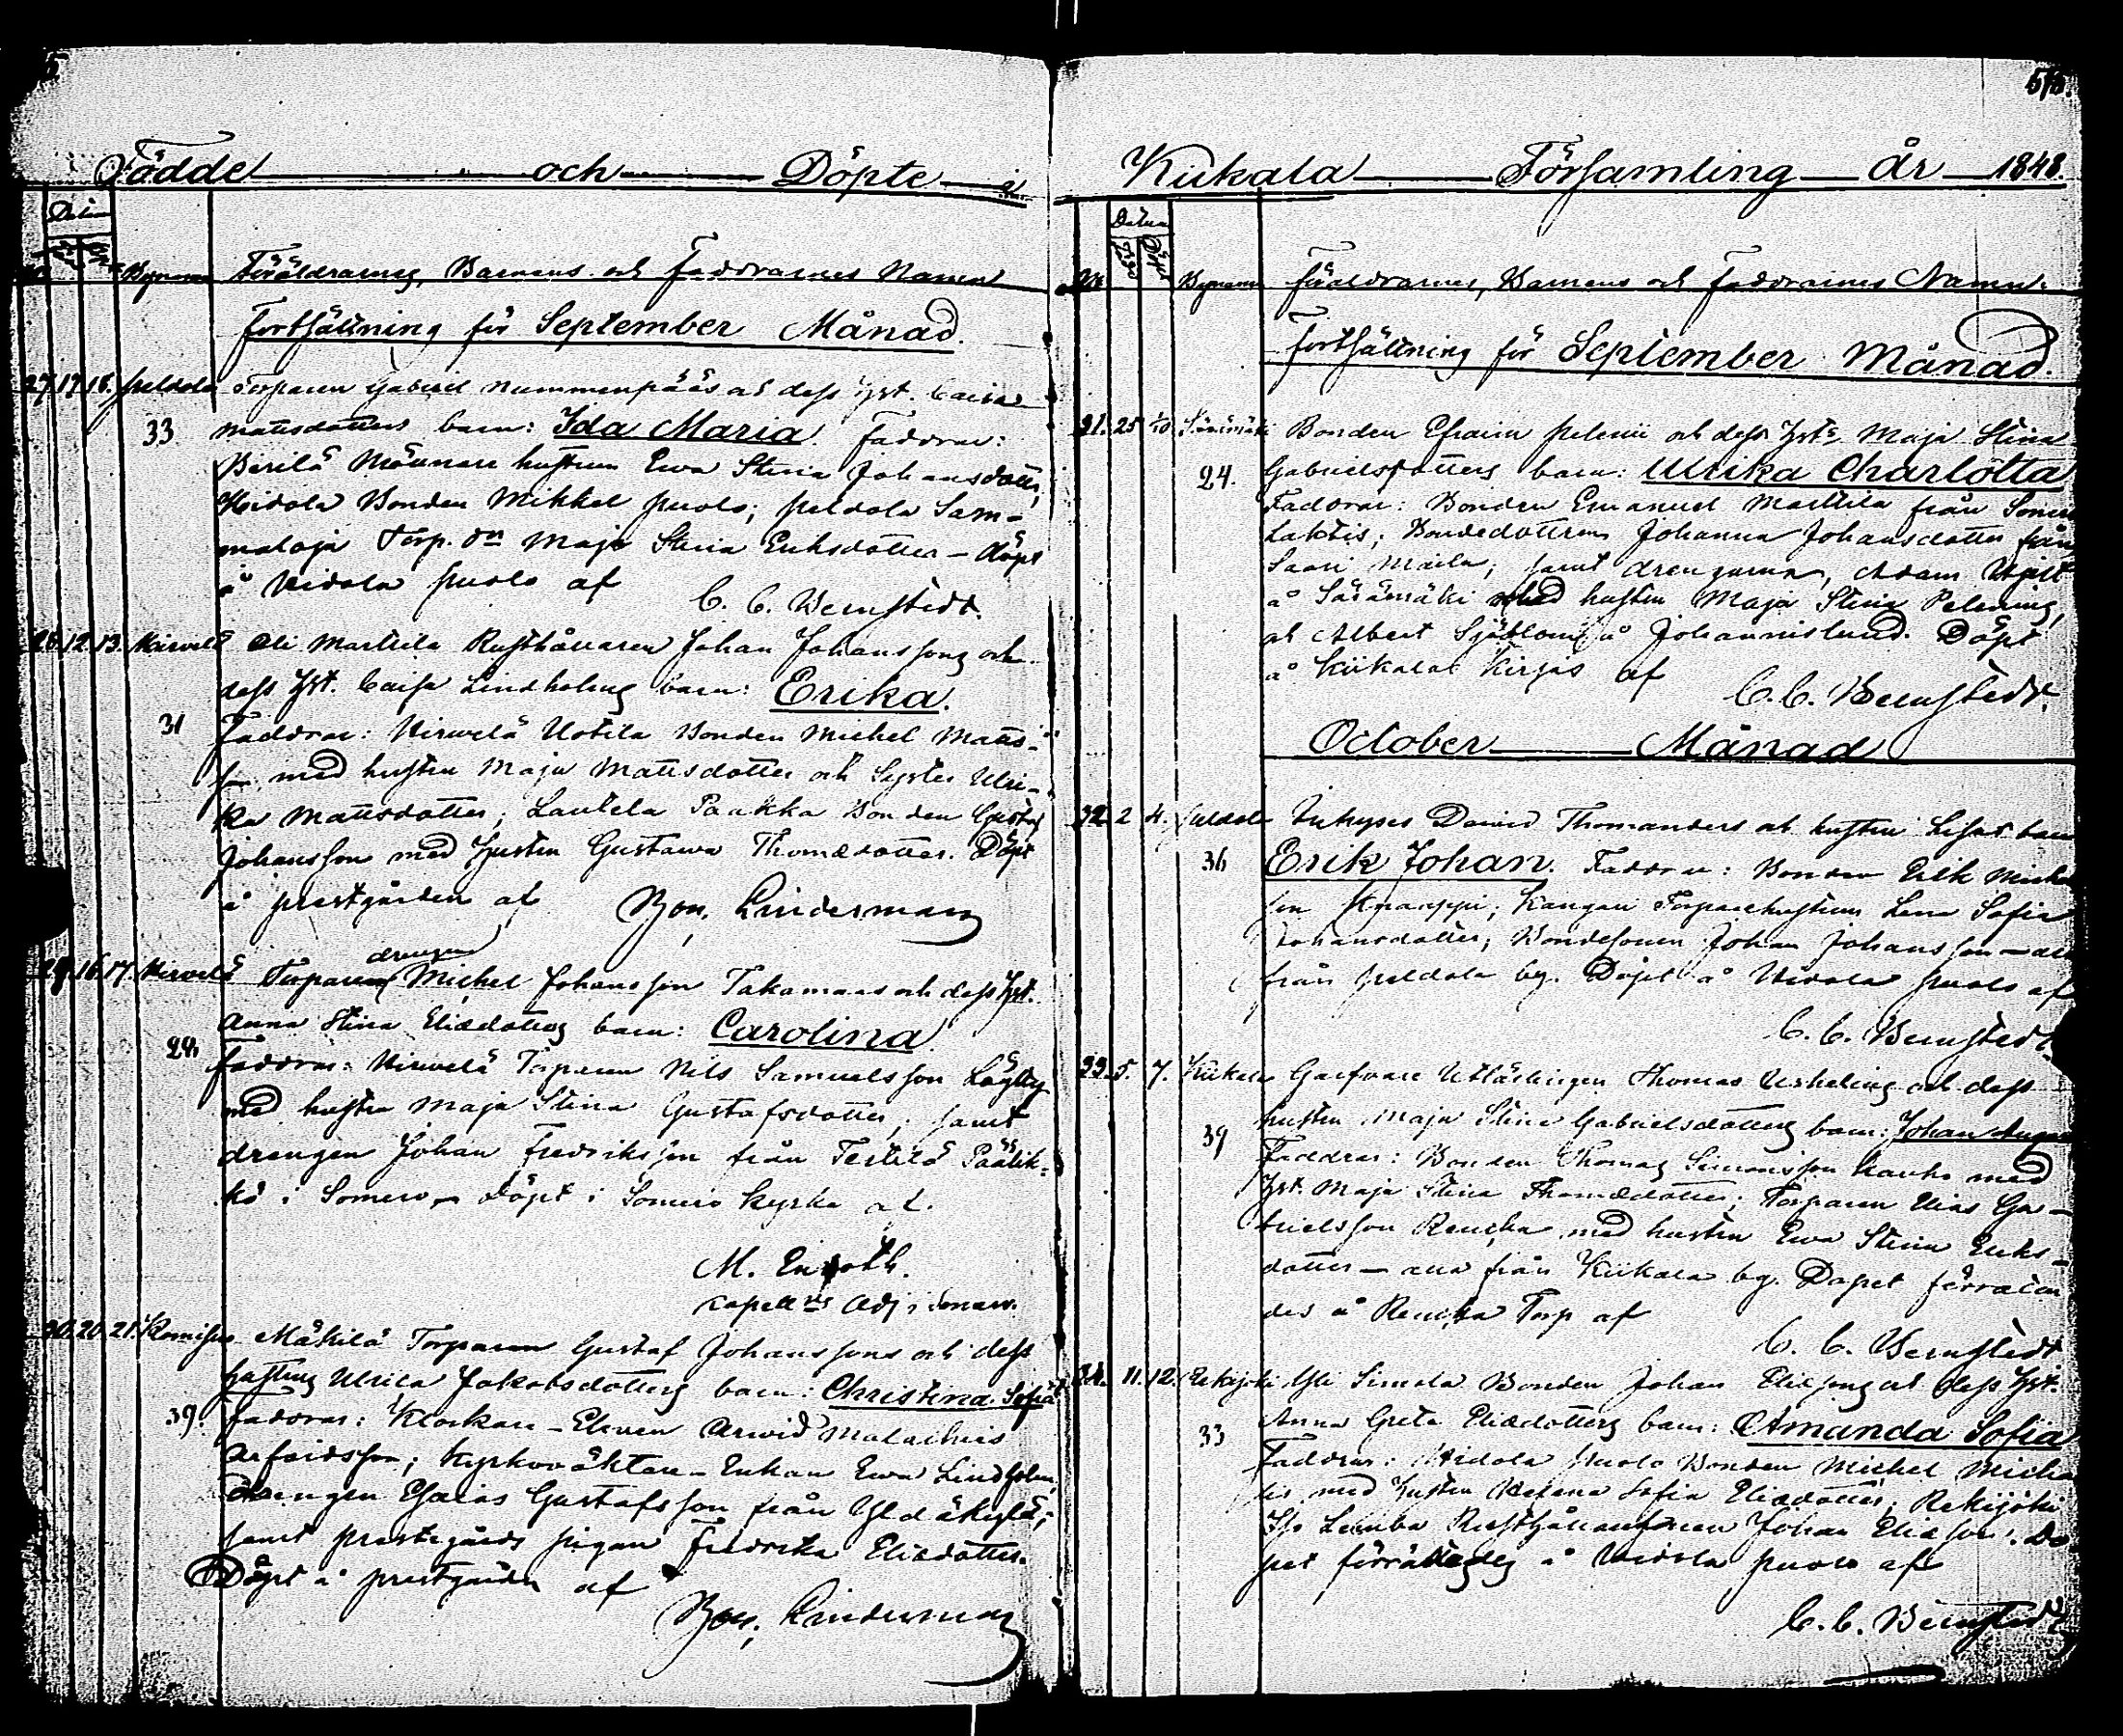 Födde och Döpte i
Datum
Bynamn Föräldrarnes, Barnens och Faddrarnes Namn
Fortsättning för September Månad.
27. 17. 18. Peldola Torparen Gabriel Nummenpääs och dess Hst. Caisa
33 Mattsdotters barn: Ida Maria. Faddrar:
Mäenare hustrun Ewa Stina Johansdotter,
Hidola Bonden Mikkel Puolo; Peldola Sam-
maloja Torp. Maja Stina Eriksdotter – döpt
å Hidola Puolo af
C. C. Wernstedt.
28. 12. 13. Hirvelä Oli Marttila Rusthållaren Johan Johanssons och
dess Hst. Caisa Lindholms barn: Erika.
31 Faddrar: Hirwelä Uotila Bonden Michel Matts-
son med hustru Maja Mattsdotter och Syster Ulri-
ka Mattsdotter; Lautela Paakka Bonden Gustaf
Johansson med Hustru Gustawa Thomædotter. Döpt
å prestgården af Linderman
29. 16. 17. Hirvelä Torparen drengen Michel Johansson Takamaas och dess Hst.
Anna Stina Eliædotters barn: Carolina.
29. Faddrar: Hirwelä Torparen Nils Samuelsson
med hustru Maja Stina Gustafsdotter, samt
drengen Johan Fredriksson från Terttilä Päälik-
kö i Somero – Döpt i Somero Kyrka af.
M. Enroth.
Capell:ns Adj. i Somero.
30. 20. 21. Komisuo Mäkilä Torparen Gustaf Johanssons och dess
hustrus Ulrica Jakobsdotters barn: Christina Sofia
39. Faddrar: Klockare-Eleven Arwid Malachias
Arfvidsson; Kyrkovaktare-Enkan Ewa Lindholm,
Drengen Esaias Gustafsson från Yldäkylä;
samt prestegårds pigan Fredrika Eliædotter.
Döpt å prestgården af
Linderman
Kiikala Församling År 1848.
Datum
No Bynamn Föräldrarnes, Barnens och Faddrarnes Namn.
Fortsättning för September Månad.
31. 25 1/10 Särämäki Bonden Efraim Pelenii och dess Hst:s Maja Stina
24. Gabrielsdotters barn: Ulrika Charlotta
Faddrar: Bonden Emanuel Marttila från Somero
Lahtis; Bondedottren Johanna Johansdotter från
Saari Maila; samt drengarna, Adam
å Särämäki med hustru Maja Stina Pelenius,
och Albert Sjöblom å Johannislund. Döpt
å Kiikala af
C. C. Wernstedt.
October Månad
32. 2 4. Peldola Inhyses David Thomanders och hustru Lisas barn
36 Erik Johan. Faddrar: Bonden Erik Michels
son Knaappi; Kangan Torparehustrun Lena Sofia
Johansdotter; Bondesonen Johan Johansson – alla
från Peldola by. Döpt å Hidola Puolo af
C. C. Wernstedt.
33. 5. 7. Kiikala Garfvare Utlärlingen Thomas och dess
hustru Maja Stina Gabrielsdotters barn: Johan August
39 Faddrar: Bonden Thomas Simonsson Kauko med
Hst. Maja Stina Thomædotter; Torparen Elias Ga-
brielsson Rencka med hustru Ewa Stina Eriks-
dotter – alla från Kiikala by. Dopet förrätta-
des å Rencka Torp af
C. C. Wernstedt
34. 11. 12. Rekijoki Yli Simola Bonden Johan Eliæsons och dess Hst.
Anna Greta Eliædotters barn: Amanda Sofia
33 Faddrar: Hidola Puolo Bonden Michel Michels
son med Hustru Helena Sofia Eliædotter; Rekijoki
Iso Lemba Rusthållaresonen Johan Eliæson. Do-
pet förrättades å Hidola Puolo af
C. C. Wernstedt